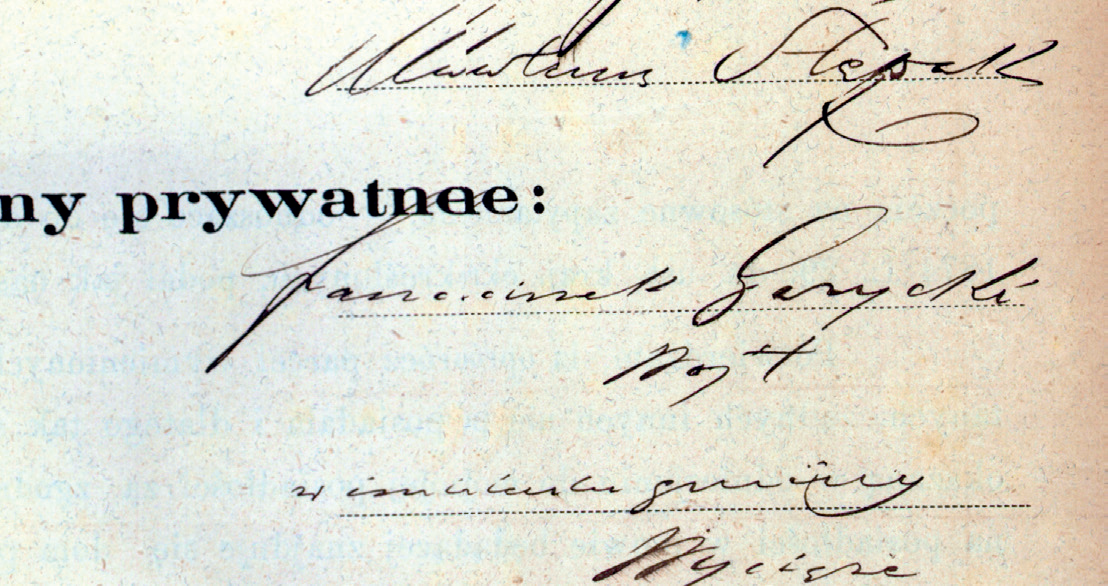 Stępak
ny prywatnee:
Franciszek Garycki
Wojt
w imieniu gminy
Wyciąże